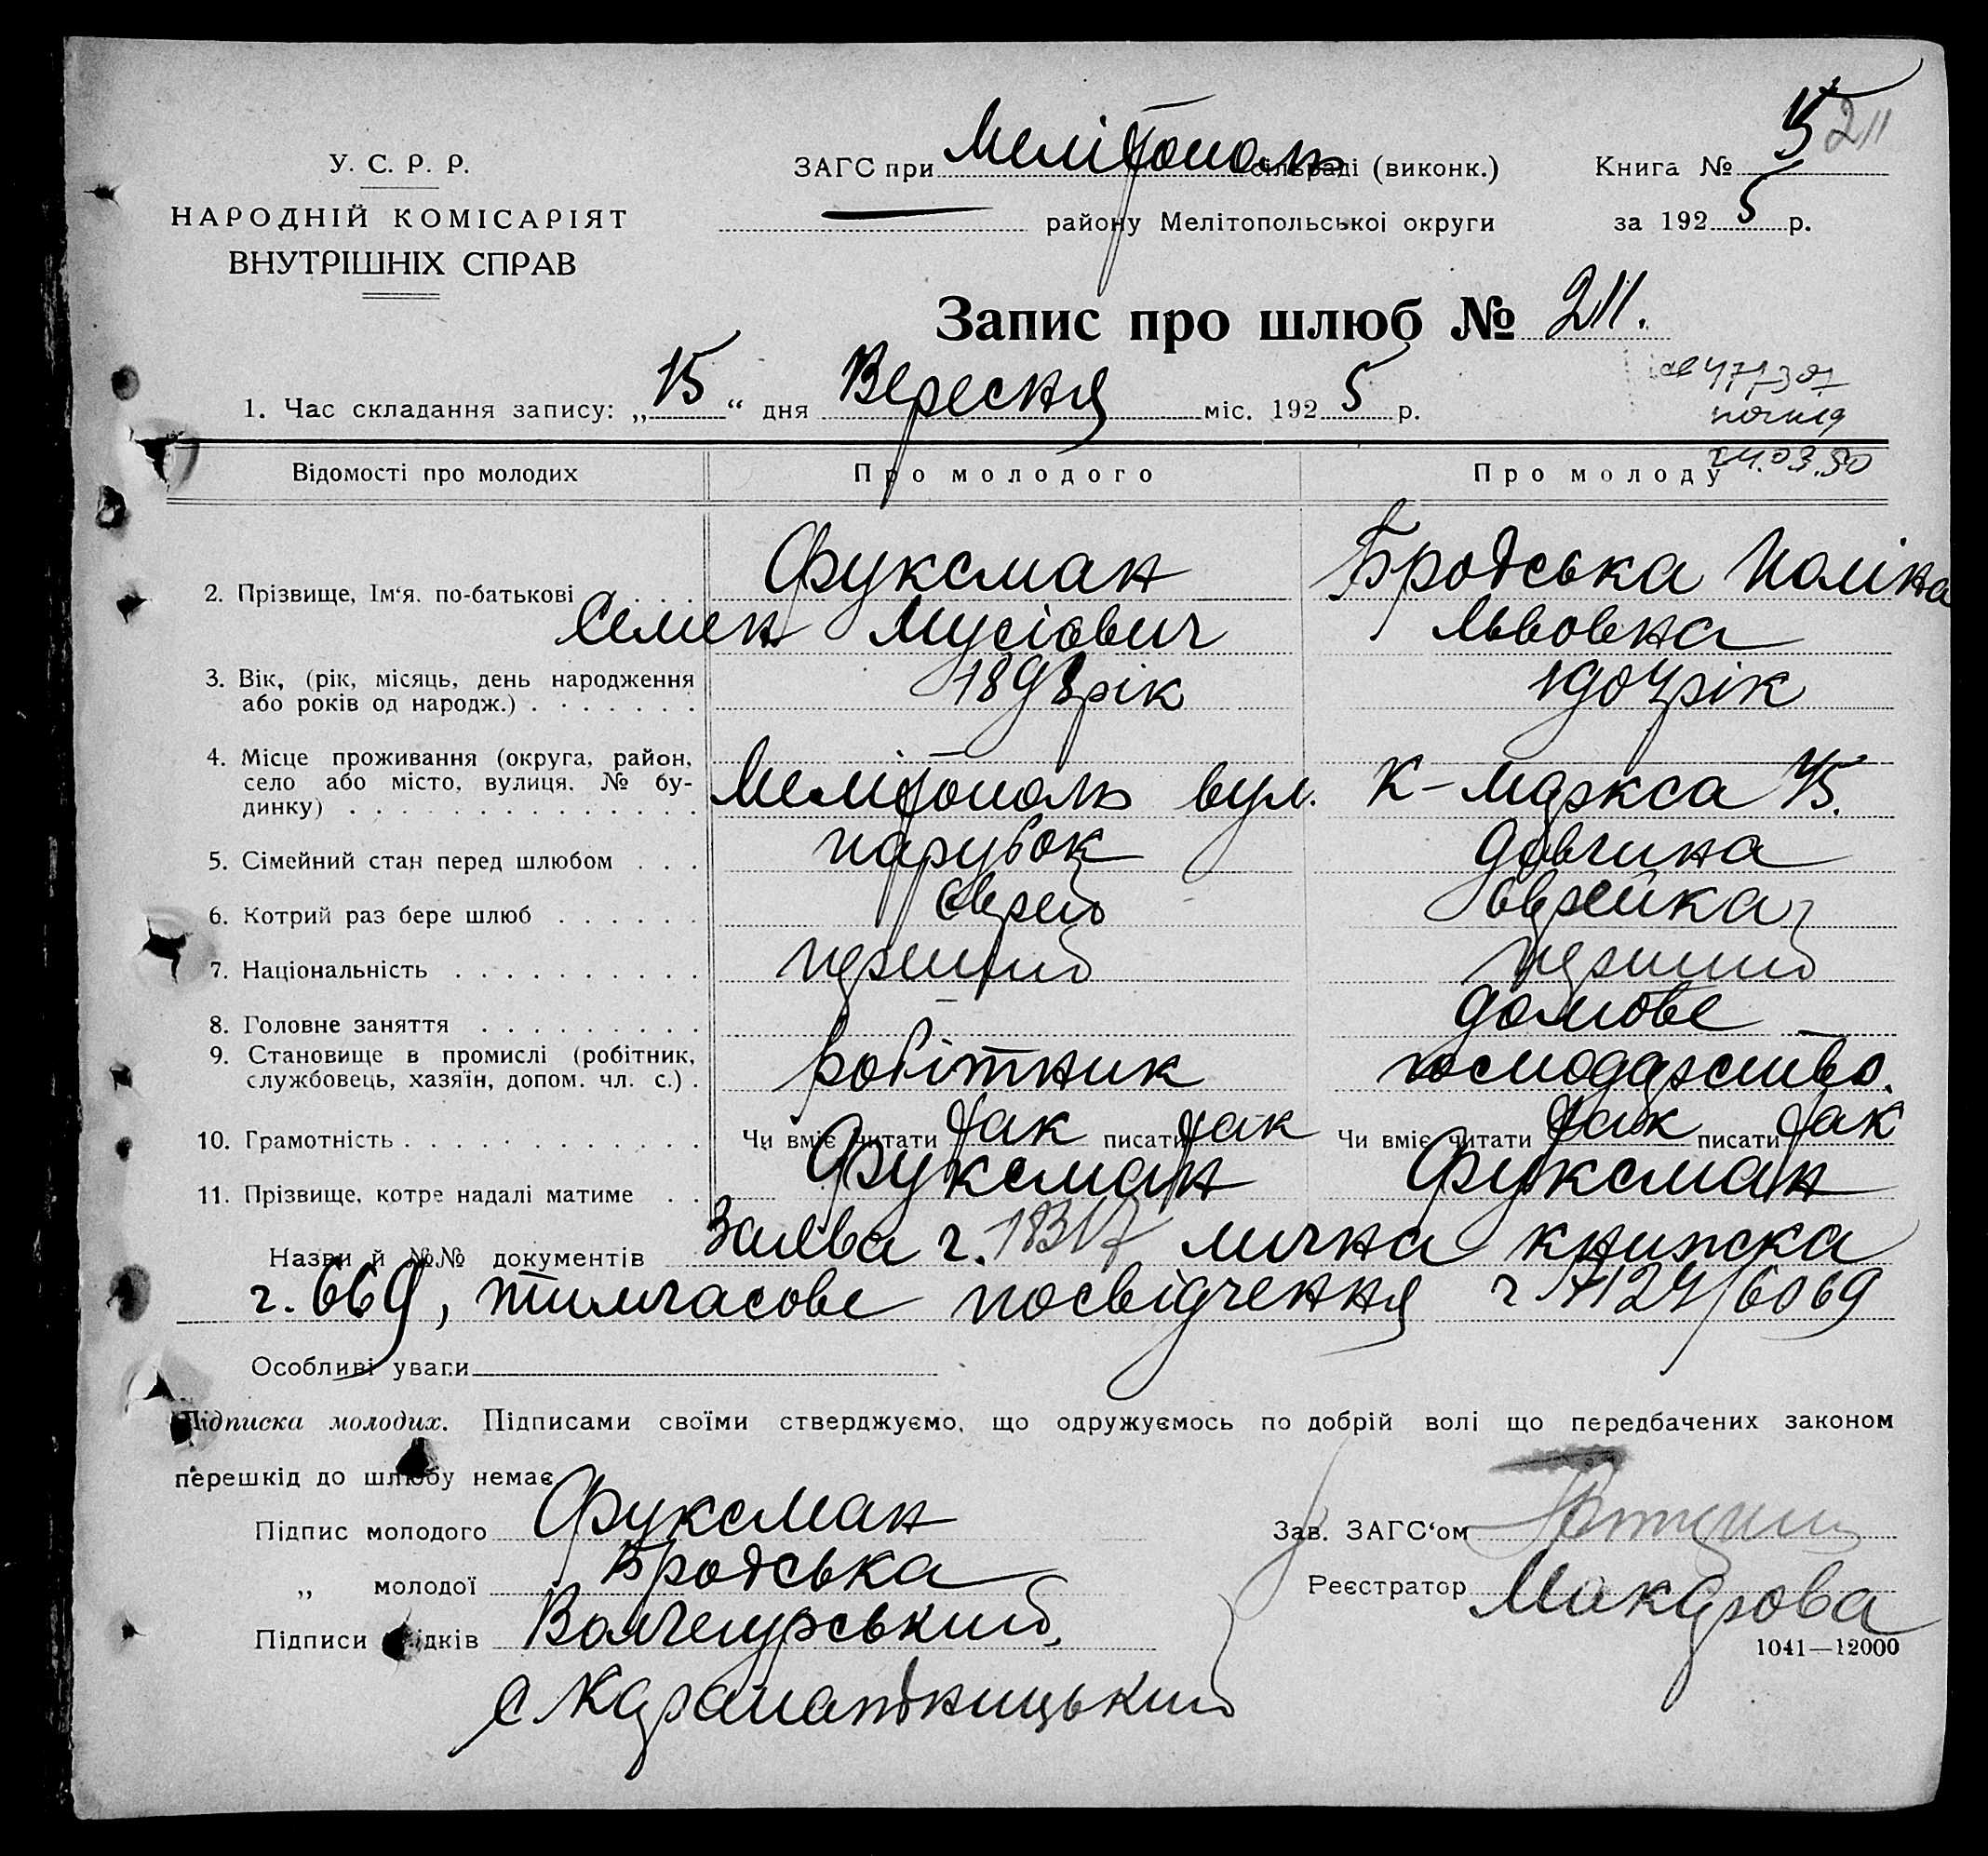 У. С. Р. Р.
НАРОДНІЙ КОМІСАРІЯТ
ВНУТРІШНІХ СПРАВ
ЗАГС при Мелітополь сільраді (виконк.)
району Мелітопольськоі округи
Книга № 5 211
за 1925 р.
Запис про шлюб № 211.
1. Час складання запису: „15“ дня Вересня міс. 1925 р.
24.03.50
Відомості про молодих Про молодого Про молоду
2. Прізвище, Ім‘я. по-батькові . . . Фуксман Бродська Поліна
Семен Мусіович Львовна
3. Вік, (рік, місяць, день народження
або років од народж.) . . . . . . . 1898 рік 1904 рік
4. Місце проживання (округа, район,
село або місто, вулиця. № бу-
динку) . . . . . . . . . . . . . . Мелітополь вул. К-Маркса 45.
5. Сімейний стан перед шлюбом . . . парубок дівчина
6. Котрий раз бере шлюб . . . . . . єврей єврейка
7. Національність . . . . . . . . . . перший перший
8. Головне заняття . . . . . . . . . — домове —
9. Становище в промислі (робітник,
службовець, хазяїн, допом. чл. с.) . робітник господарство.
10. Грамотність . . . . . . . . . . . . Чи вміє читати так писати так Чи вміє читати так писати так
11. Прізвище, котре надалі матиме . . Фуксман Фуксман
Назви й №№ документів Заява ч. 18317 лична книжка
ч. 669, тимчасове посвідчення ч 17124/6069
Особливі уваги
Підписка молодих. Підписами своїми стверджуємо, що одружуємось по добрій волі що передбачених законом
перешкід до шлюбу немає.
Підпис молодого Фуксман
„ молодої Бродська
Підписи свідків Волчегурський,
Зав. ЗАГС‘ом
Реєстратор Макарова
1041—12000